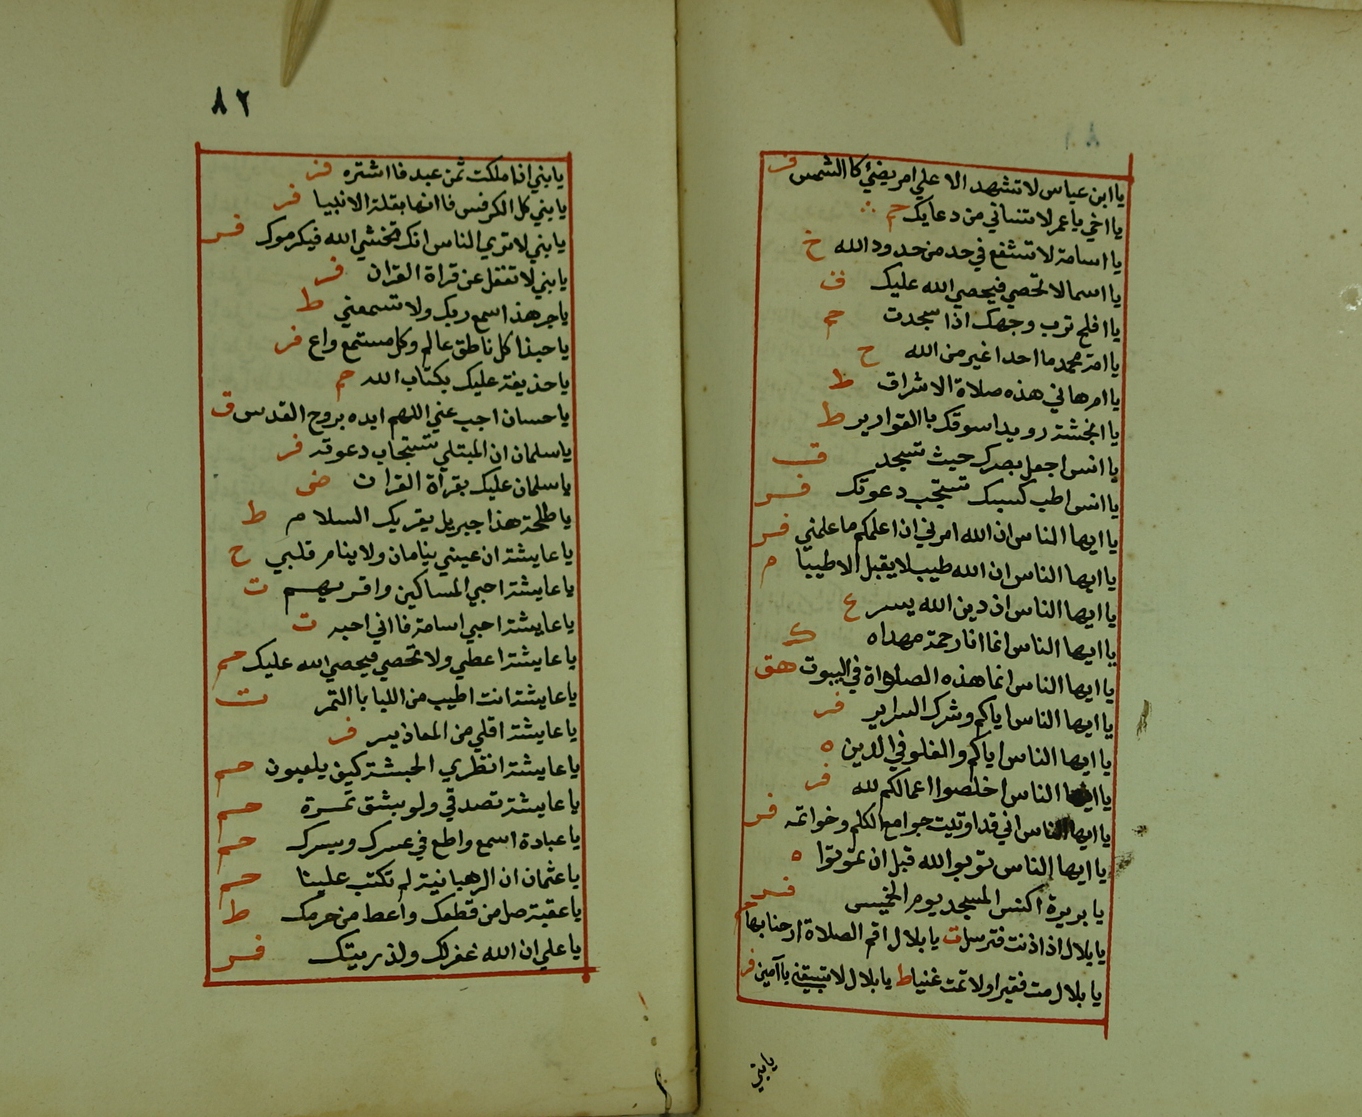 يا ابن عباس لا تشهد الا علي امر يضئ كا الشمس فر
يا اخي يا عمر لا تنساني من دعايك حم
يا اسامة لا تشفع في حد من حدود الله خ
يا اسما لا تحصي فيحصي الله عليك ق
يا افلح ترب وجهك اذا سجدت حم
يا امة محمد ما احدا غير من الله ح
يا امرهاني هذه صلاة الاشراق ط
يا انجشة رويدا سوقك با القوارير ط
يا انس اجعل بصرك حيث تسجد ق
يا انس اطب كسبك تستجب دعوتك فر
يا ايها الناس ان الله امرني ان اعلمكم ما علمني فر
يا ايها الناس ان الله طيب لا يقبل الا طيبا م
يا ايها الناس ان دين الله يسر ع
يا ايها الناس انما انا رحمة مهداه ك
يا ايها الناس انما هذه الصلواة في البيوت هق
يا ايها الناس اياكم وشرك السراير فر
يا ايها الناس اياكم والغلو في الدين ه
يا ايها الناس اخلصوا اعمالكم لله فر
يا ايها الناس اني قد اوتيت جوامع الكلم وخواتمه فر
يا ايها الناس توبوا الله قبل ان تموتوا ه
يا بريرة اكنس المسجد يوم الخميس فر
يا بلال اذا اذنت فترسل ت يا بلال اقم الصلاة ارحنا بها حم
يا بلال مت فقيرا ولا تمت غنيا ط يا بلال لا تسبقني باآمين فر
يا بني
٨٢
يا بني اذا ملكت ثمن عبد فا اشتره فر
يا بني كل الكرفس فا انها بقلة الانبيا فر
يا بني لا تري الناس انك تخشي الله فيكرموك فر
يا بني لا تغفل عن قراة القران فر
يا جرهذ اسمع ربك ولا تسمعني ط
يا حبذا كل ناطق عالم وكل مستمع واع فر
يا حذيفة عليك بكتاب الله حم
يا حسان اجب عني اللهم ايده بروح القدس ق
يا سلمان ان المبتلي تستجاب دعوته فر
يا سلمان عليك بقرأة القران ض
يا طلحة هذا جبريل يقريك السلام ط
يا عايشة ان عيني ينامان ولا ينام قلبي ح
يا عايشة احبي المساكين واقربيهم ت
يا عايشة احبي اسامة فا اني احبه ت
يا عايشة اعطي ولا تحصي فيحصي الله عليك حم
يا عايشة انت اطيب من اللبا با التمر ت
يا عايشة اقلي من المعاذير فر
يا عايشة انظري الحبشة كيف يلعبون حم
يا عايشة تصدقي ولو بشق تمرة حم
يا عبادة اسمع واطع في عسرك ويسرك حم
يا عثمان ان الرهبانية لم تكتب علينا حم
يا عقبة صل من قطعك واعط من حرمك ط
يا علي ان الله غفر لك ولذريتك فر